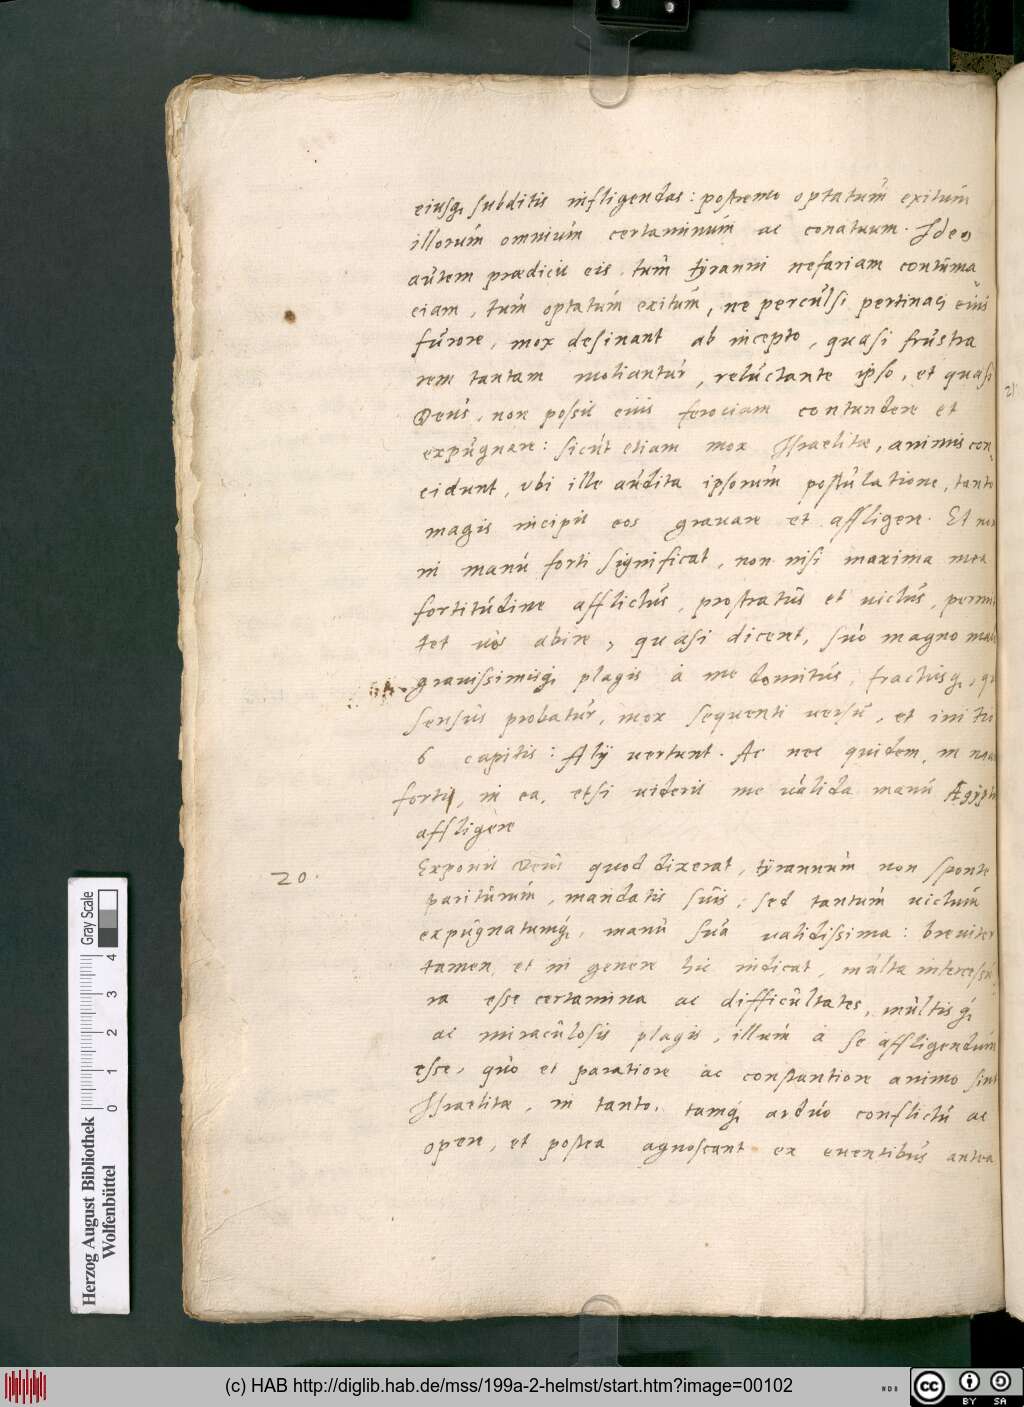 eiusq, subditis infligendas: postremo optatum exitum
illorum omnium certaminum ac conatuum. Ideo
autem prædicit eis tum tyranni nefariam contuma
ciam, tum optatum exitum, ne perculsi pertinaci eius
furore, mox desinant ab incepto, quasi frustra
rem tantam moliantur, reluctante ipso, et quasi
Deus, non possit eius ferociam contundere et
expugnare: sicut etiam mox Israelitæ, animis con¬
cidunt, ubi ille audita ipsorum postulatione, tanto
magis incipit eos gravare et affligere. Et
in manu forti significat, non nisi maxima mea
fortitudine afflictus, prostratus et victus, permit
tet vos abire, quasi diceret, suo magno malo
gravissimisq, plagis à me domitus, fractusq,
sensus probatur, mox sequenti versu, et initio
6 capitis: Alij vertunt. Ac nec quidem, in manu
forti, in ea, etsi viderit me valida manu Ægyptū
affligere
20.
Exponit Deus quod dixerat, tyrannum non sponte
pariturum, mandatis suis, sed tantum victum
expugnatumq, manu sua validissima: breviter
tamen, et in genere hic indicat, multa intercessu
ra esse certamina ac difficultates, multisq,
ac miraculosis plagis, illum à se affligendum
esse, quo et paratiore ac constantiore animo sint
Israelitæ, in tanto, tamq, arduo conflictu ac
opere, et postea agnoscant ex eventibus antea
Gray Scale
0 1 2 3 4
Herzog August Bibliothek
Wolfenbüttel
(c) HAB http://diglib.hab.de/mss/199a-2-helmst/start.htm?image=00102
cc BY SA